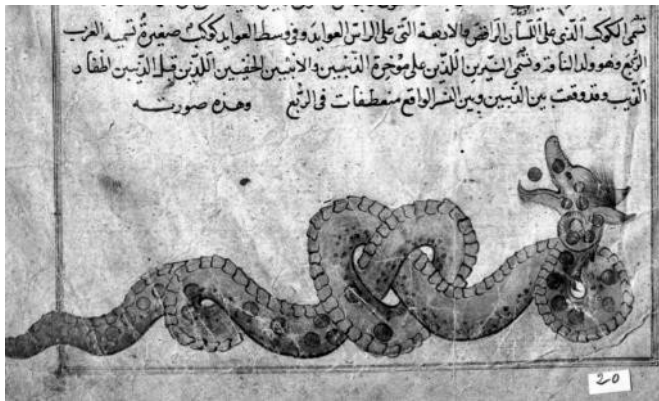 تسمى الكوكب الذى على اللسان الراقص والاربعة التى على الراس العوايد وفى وسط العوايد كوكب صغير تسميه العرب
الربع وهو ولد الناقة وتسمى النيرين اللذين على موخرة الذيبين والاثنين الخفيين اللذين قبل الذيبين اظفار
الذيب وقد وقعت بين الذيبين وبين النسر الواقع منعطفات فى الربع وهذه صورته
20